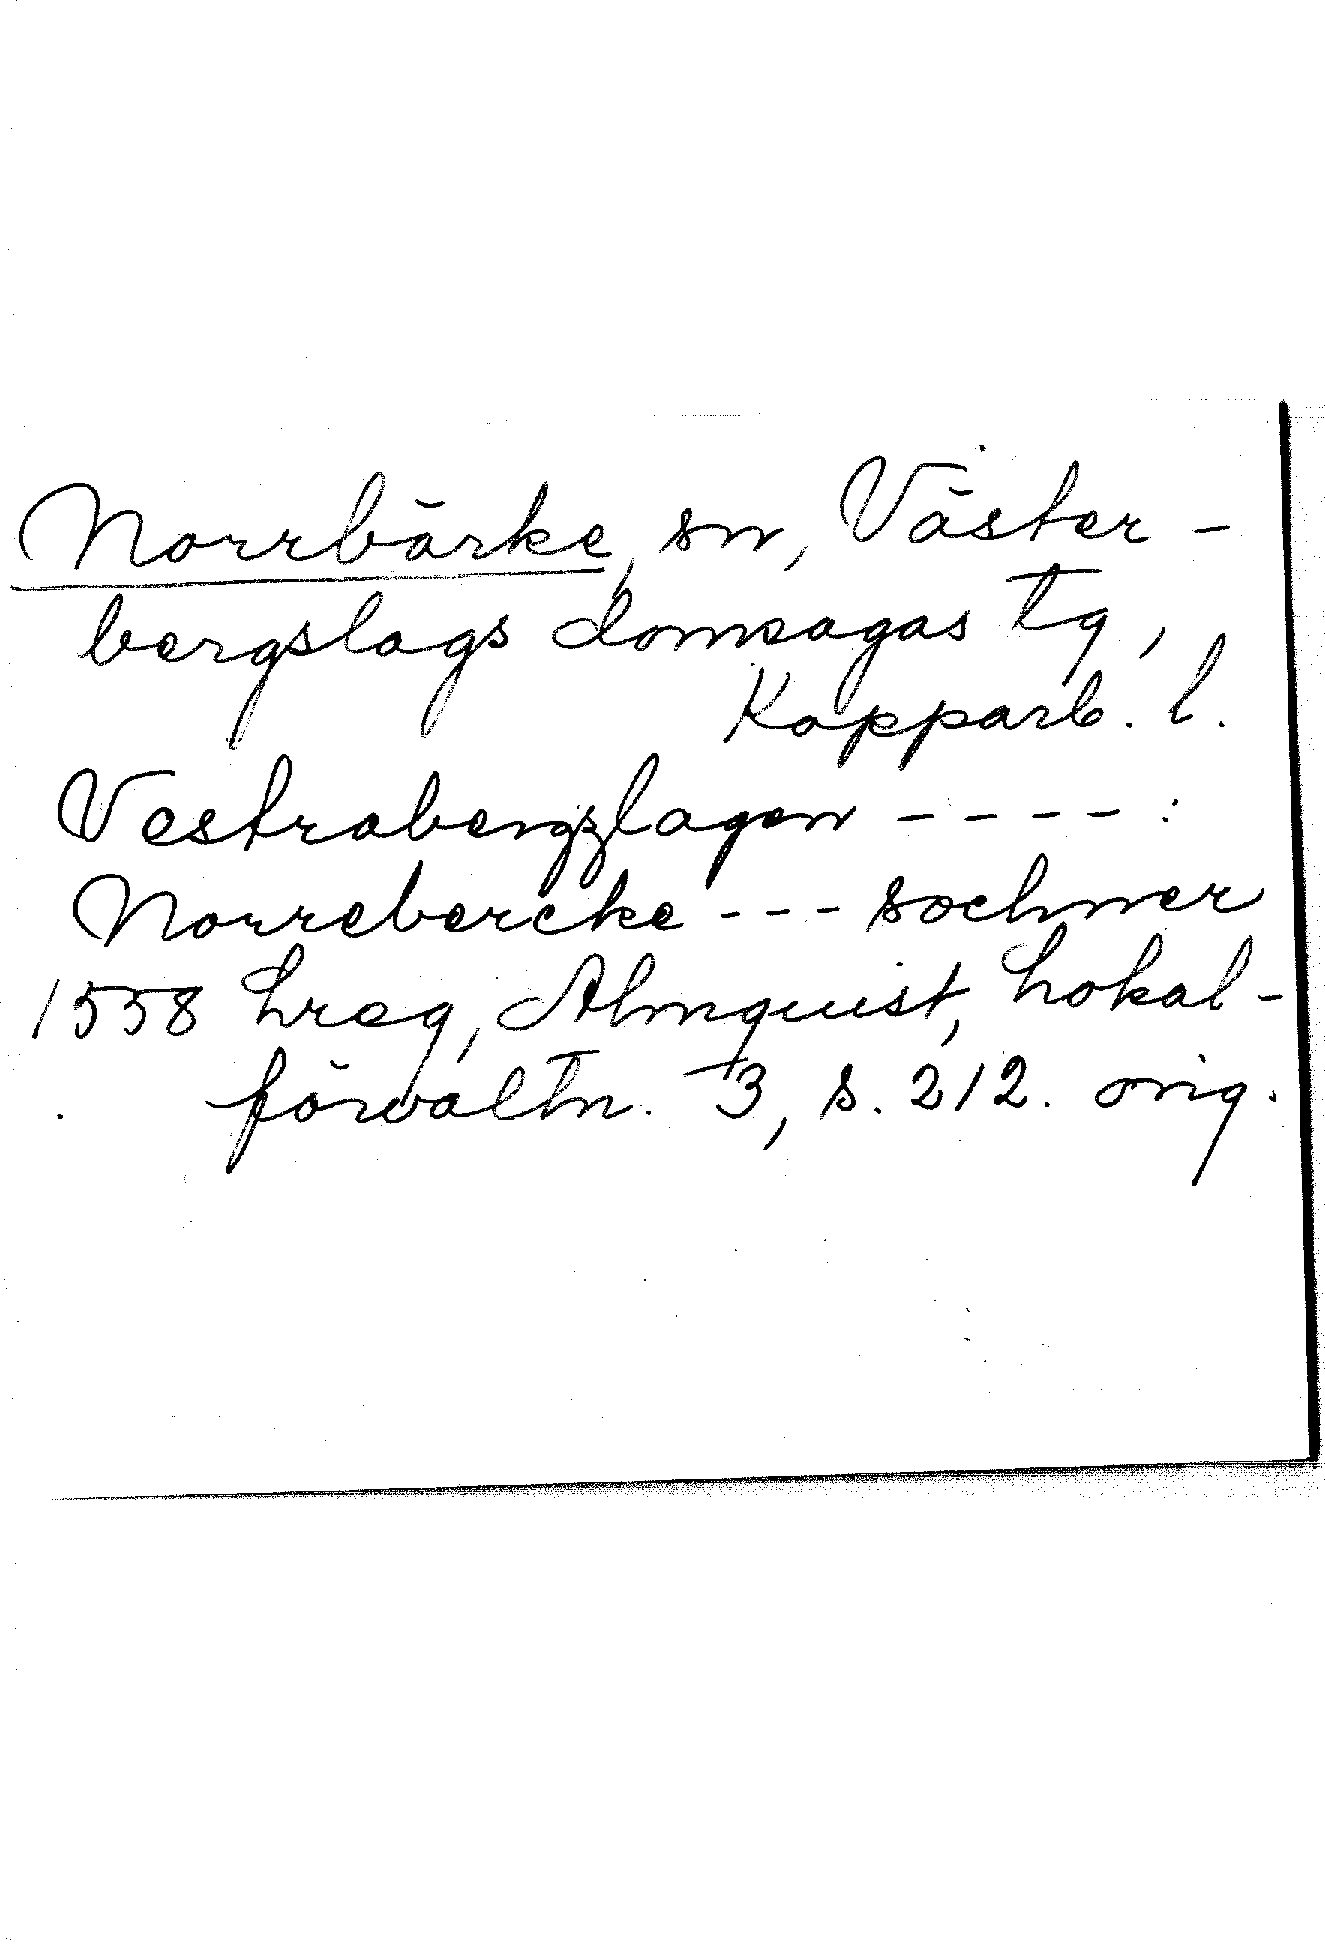 Norrbärke, sn, Väster-
bergslags domsagas tg,
Kopparb. l.
Vestrabergzlagen - - - - :
Norrebercke - - - sochner
1558 Lreg, Almquist, Lokal-
förvaltn. 3, s. 212. orig.